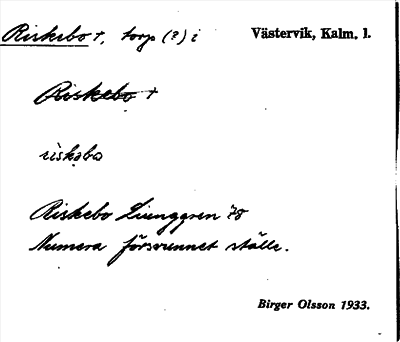 Riskebo †, torp (?) i Västervik, Kalm. l.
Riskebo †
riskəbo
Riskebo Liunggren 78
Numera försvunnet ställe.
Birger Olsson 1933.